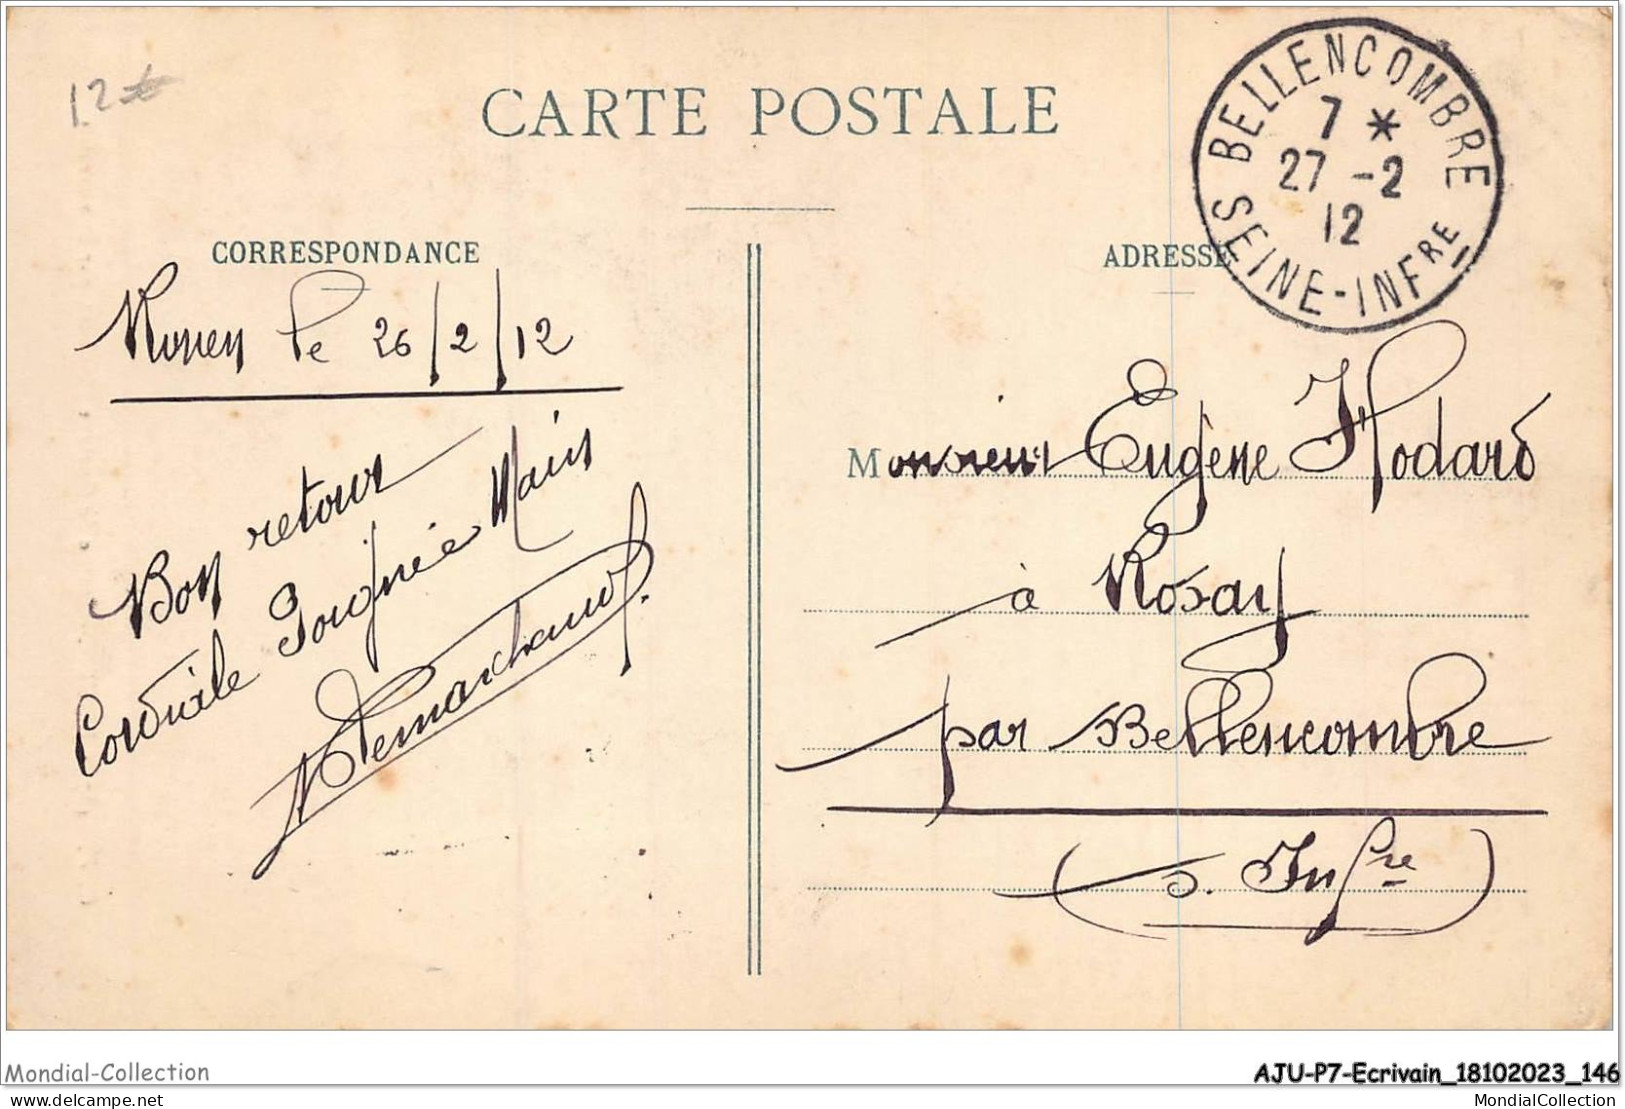 12€
CARTE POSTALE
BELLENCOMBRE
7 *
27 -2
12
SEINE-INFRE
CORRESPONDANCE
Rouen le 26/2/12
Bon retour
Cordiale Poignée Mains
ADRESSE
Monsieur Eugène Hodard
à Rosay
par Bellencombre
(S. Infre)
Mondial-Collection
AJU-P7-Ecrivain_18102023_146
mondial-collection.com
MondialCollection